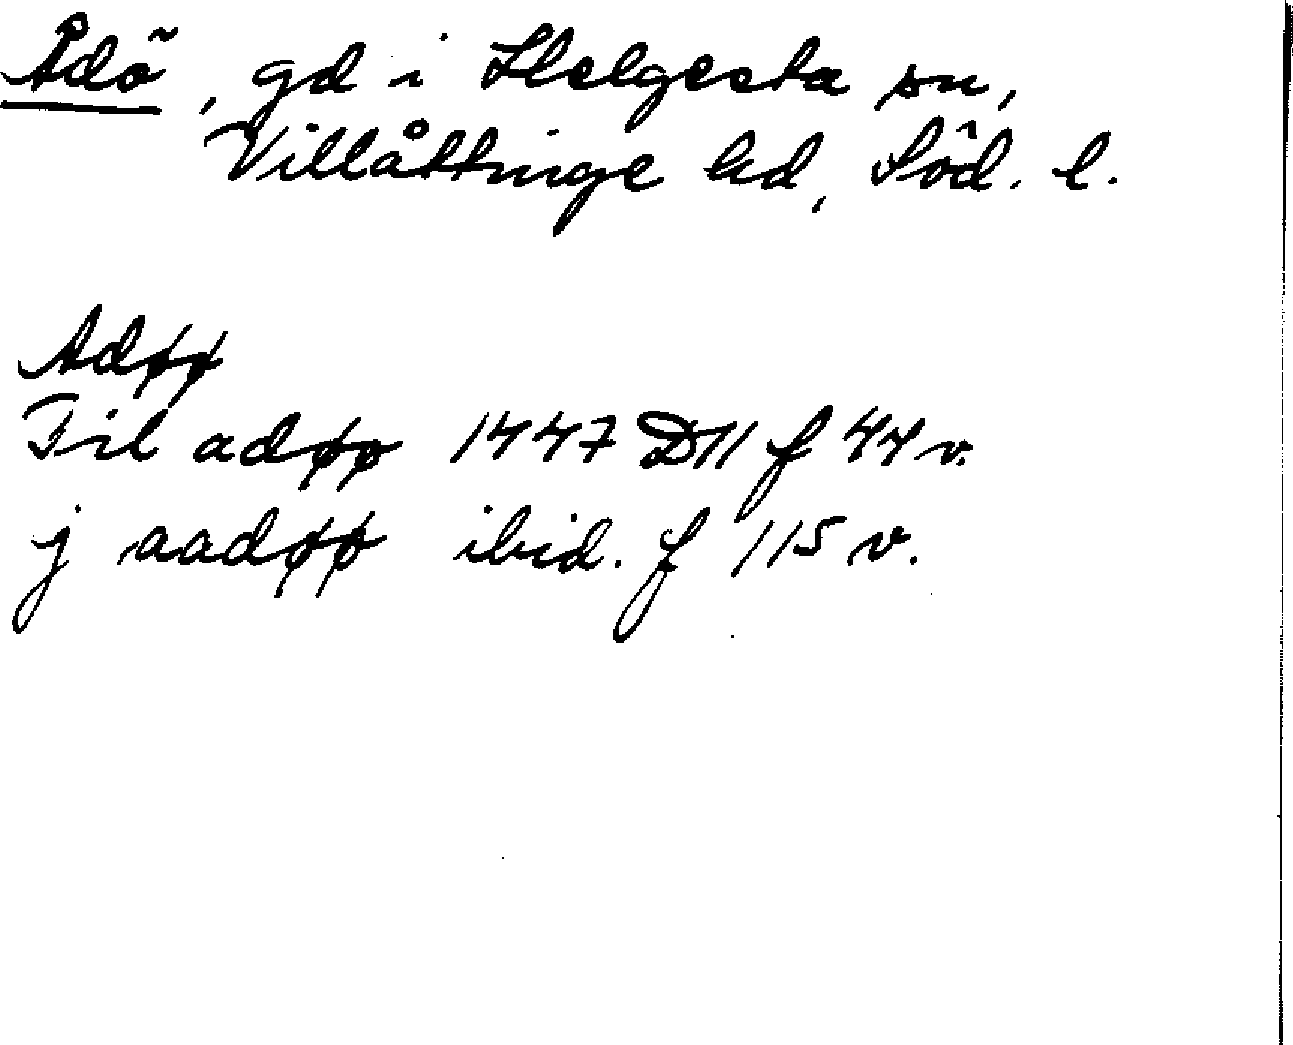 Ådö, gd i Helgesta sn,
Villåttinge hd, Söd. l.
Adøø
Til adøø 1447 D11 f 44 v.
j aadøø ibid. f 115 v.